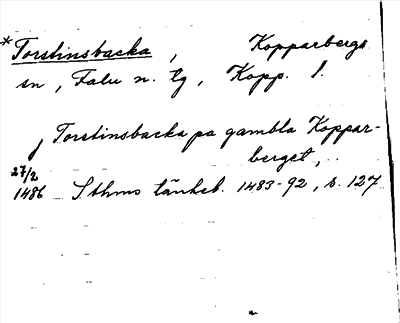 *Torstinsbacka, Kopparbergs
sn, Falu n. tg, Kopp. l.
j Torstinsbacka pa gambla Koppar-
berget,
27/2
1486 Sthms tänkeb. 1483-92, s. 127